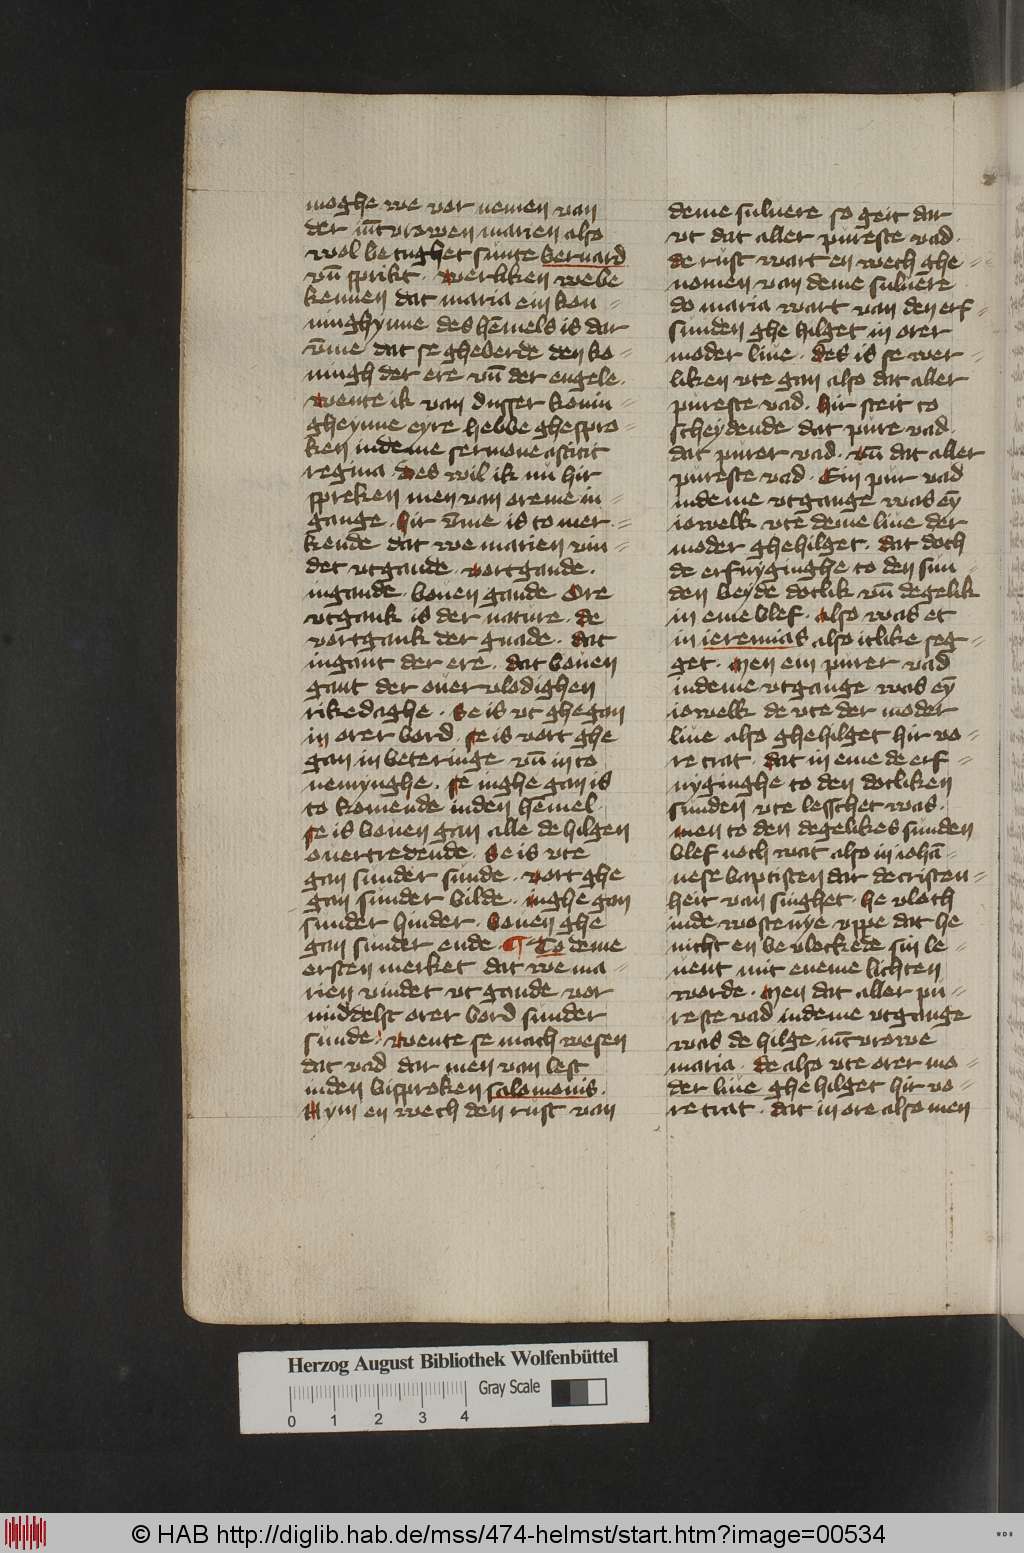 moghe we vor nemen van
der iūcvrowen marien also
wol be tughet sunte bernard
vn̄ sprikt · werliken we be
kennen dat maria ein kon=
ninghynne des hēmels is dar
v̄me dat se gheberde den ko=
ningh der ere vn̄ der engele ·
wente ik van dusser konin=
gheynne eyre hebbe ghespro=
ken in deme sermone astitit
regina · Des wil ik nu hir
spreken men van oreme in=
gange · hir v̄me is to mer=
kende dat we marien vin=
det vtgande · vortgande ·
ingande · bouen gande Ore
vtgank is der nature · de
vortgank der gnade · dat
ingant der ere · dat bouen
gant der ouer vlodighen
rikedaghe · Se is vt ghe gan
in orer bord · se is vort ghe
gan in beteringe vn̄ in to
nemynghe · se in ghe gan is
to komende in den hemel ·
se is bouen gan alle de hilgen
ouertredende · Se is vte
gan sunder sunde · vort ghe
gan sunder bilde · in ghe gan
sunder hinder · bouen ghe
gan sunder ende · ¶ To deme
ersten merket dat we ma=
rien vindet vt gande vor
middelst orer bord sunder
sunde · wente se mach wesen
dat vad dar men van lest
in den bisproken salomonis ·
Nym en wech den rust van
deme suluere so geit dar
vt dat aller pureste vad ·
de rust wart en wech ghe=
nomen van deme suluere
do maria wart van den erf=
sunden ghe hilget in orer
moder liue · des is se wer=
liken vte gan also dat aller
pureste vad · hir steit to
scheydende dat pure vad ·
dat purer vad · vn̄ dat aller
pureste vad · Ein pur vad
in deme vtgange was eȳ
iowelk vte deme liue der
moder ghehilget · dat doch
de erfnyginghe to den sun=
den beyde dotlik vn̄ degelik
in eme blef · also was et
in ieremias also itlike seg=
get · Men ein purer vad
in deme vtgange was eȳ
iowelk de vte der moder
liue also ghehilget hir vo=
re trat · dat in eme de erf=
nyginghe to den dotliken
sunden vte lesschet was ·
men to den degelikes sunden
blef noch wat also in iohā=
nese baptisten dar de cristen=
heit van singhet · he vloch
in de wostenye vppe dat he
nicht en be vleckede sin le=
uent mit eneme lichten
worde · Men dat aller pu=
reste vad in deme vtgange
was de hilge iūcvrowe
maria · de also vte orer mo=
der liue ghe hilget hir vo=
re trat · dat in ore also men
Herzog August Bibliothek Wolfenbüttel
Gray Scale
0 1 2 3 4
© HAB http://diglib.hab.de/mss/474-helmst/start.htm?image=00534